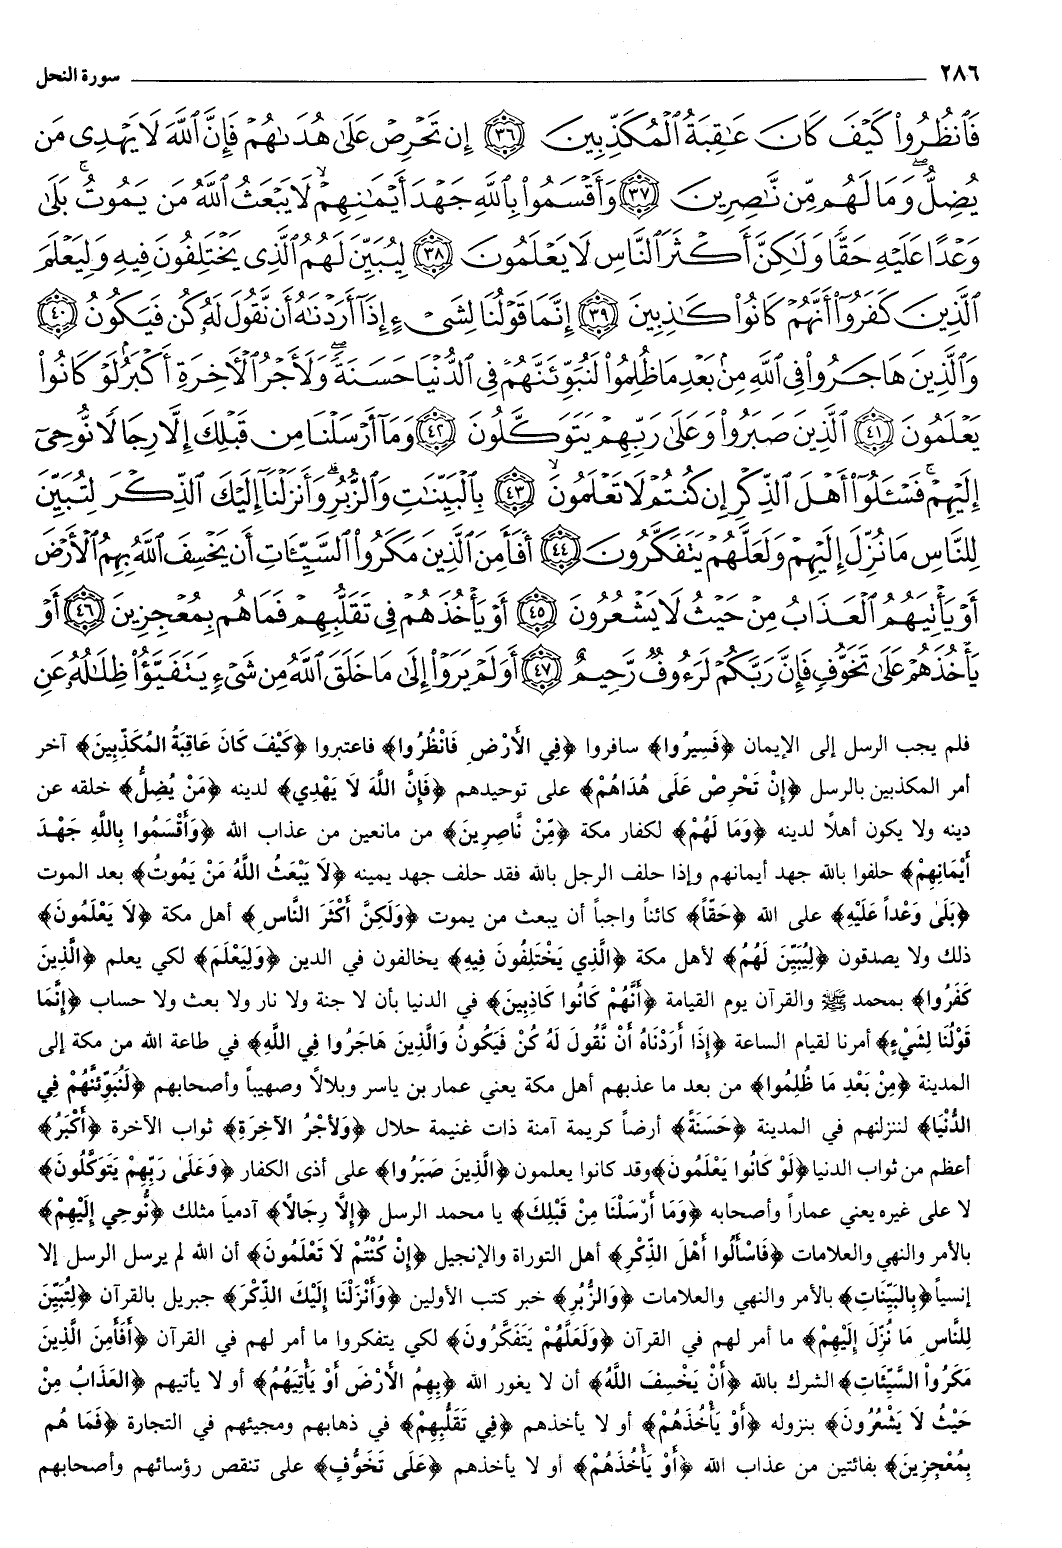 ٢٨٦ سورة النحل
فَٱنظُرُوا۟ كَيْفَ كَانَ عَٰقِبَةُ ٱلْمُكَذِّبِينَ ﴿٣٦﴾ إِن تَحْرِصْ عَلَىٰ هُدَىٰهُمْ فَإِنَّ ٱللَّهَ لَا يَهْدِى مَن
يُضِلُّ ۖ وَمَا لَهُم مِّن نَّٰصِرِينَ ﴿٣٧﴾ وَأَقْسَمُوا۟ بِٱللَّهِ جَهْدَ أَيْمَٰنِهِمْ ۙ لَا يَبْعَثُ ٱللَّهُ مَن يَمُوتُ ۚ بَلَىٰ
وَعْدًا عَلَيْهِ حَقًّا وَلَٰكِنَّ أَكْثَرَ ٱلنَّاسِ لَا يَعْلَمُونَ ﴿٣٨﴾ لِيُبَيِّنَ لَهُمُ ٱلَّذِى يَخْتَلِفُونَ فِيهِ وَلِيَعْلَمَ
ٱلَّذِينَ كَفَرُوٓا۟ أَنَّهُمْ كَانُوا۟ كَٰذِبِينَ ﴿٣٩﴾ إِنَّمَا قَوْلُنَا لِشَىْءٍ إِذَآ أَرَدْنَٰهُ أَن نَّقُولَ لَهُۥ كُن فَيَكُونُ ﴿٤٠﴾
وَٱلَّذِينَ هَاجَرُوا۟ فِى ٱللَّهِ مِنۢ بَعْدِ مَا ظُلِمُوا۟ لَنُبَوِّئَنَّهُمْ فِى ٱلدُّنْيَا حَسَنَةً ۖ وَلَأَجْرُ ٱلْءَاخِرَةِ أَكْبَرُ ۚ لَوْ كَانُوا۟
يَعْلَمُونَ ﴿٤١﴾ ٱلَّذِينَ صَبَرُوا۟ وَعَلَىٰ رَبِّهِمْ يَتَوَكَّلُونَ ﴿٤٢﴾ وَمَآ أَرْسَلْنَا مِن قَبْلِكَ إِلَّا رِجَالًا نُّوحِىٓ
إِلَيْهِمْ ۚ فَسْـَٔلُوٓا۟ أَهْلَ ٱلذِّكْرِ إِن كُنتُمْ لَا تَعْلَمُونَ ۙ ﴿٤٣﴾ بِٱلْبَيِّنَٰتِ وَٱلزُّبُرِ ۗ وَأَنزَلْنَآ إِلَيْكَ ٱلذِّكْرَ لِتُبَيِّنَ
لِلنَّاسِ مَا نُزِّلَ إِلَيْهِمْ وَلَعَلَّهُمْ يَتَفَكَّرُونَ ﴿٤٤﴾ أَفَأَمِنَ ٱلَّذِينَ مَكَرُوا۟ ٱلسَّيِّـَٔاتِ أَن يَخْسِفَ ٱللَّهُ بِهِمُ ٱلْأَرْضَ
أَوْ يَأْتِيَهُمُ ٱلْعَذَابُ مِنْ حَيْثُ لَا يَشْعُرُونَ ﴿٤٥﴾ أَوْ يَأْخُذَهُمْ فِى تَقَلُّبِهِمْ فَمَا هُم بِمُعْجِزِينَ ﴿٤٦﴾ أَوْ
يَأْخُذَهُمْ عَلَىٰ تَخَوُّفٍ فَإِنَّ رَبَّكُمْ لَرَءُوفٌ رَّحِيمٌ ﴿٤٧﴾ أَوَلَمْ يَرَوْا۟ إِلَىٰ مَا خَلَقَ ٱللَّهُ مِن شَىْءٍ يَتَفَيَّؤُا۟ ظِلَٰلُهُۥ عَنِ
فلم يجب الرسل إلى الإيمان ﴿فَسِيرُوا﴾ سافروا ﴿فِي الأَرْضِ فَانْظُرُوا﴾ فاعتبروا ﴿كَيْفَ كَانَ عَاقِبَةُ المُكَذِّبِينَ﴾ آخر
أمر المكذبين بالرسل ﴿إِنْ تَحْرِصْ عَلَى هُدَاهُمْ﴾ على توحيدهم ﴿فَإِنَّ اللَّهَ لَا يَهْدِي﴾ لدينه ﴿مَنْ يُضِلُّ﴾ خلقه عن
دينه ولا يكون أهلاً لدينه ﴿وَمَا لَهُمْ﴾ لكفار مكة ﴿مِّنْ نَّاصِرِينَ﴾ من مانعين من عذاب الله ﴿وَأَقْسَمُوا بِاللَّهِ جَهْدَ
أَيْمَانِهِمْ﴾ حلفوا بالله جهد أيمانهم وإذا حلف الرجل بالله فقد حلف جهد يمينه ﴿لَا يَبْعَثُ اللَّهُ مَنْ يَمُوتُ﴾ بعد الموت
﴿بَلَىٰ وَعْداً عَلَيْهِ﴾ على الله ﴿حَقّاً﴾ كائناً واجباً أن يبعث من يموت ﴿وَلَكِنَّ أَكْثَرَ النَّاسِ﴾ أهل مكة ﴿لَا يَعْلَمُونَ﴾
ذلك ولا يصدقون ﴿لِيُبَيِّنَ لَهُمُ﴾ لأهل مكة ﴿الَّذِي يَخْتَلِفُونَ فِيهِ﴾ يخالفون في الدين ﴿وَلِيَعْلَمَ﴾ لكي يعلم ﴿الَّذِينَ
كَفَرُوا﴾ بمحمد ﷺ والقرآن يوم القيامة ﴿أَنَّهُمْ كَانُوا كَاذِبِينَ﴾ في الدنيا بأن لا جنة ولا نار ولا بعث ولا حساب ﴿إِنَّمَا
قَوْلُنَا لِشَيْءٍ﴾ أمرنا لقيام الساعة ﴿إِذَا أَرَدْنَاهُ أَنْ نَّقُولَ لَهُ كُنْ فَيَكُونُ وَالَّذِينَ هَاجَرُوا فِي اللَّهِ﴾ في طاعة الله من مكة إلى
المدينة ﴿مِنْ بَعْدِ مَا ظُلِمُوا﴾ من بعد ما عذبهم أهل مكة يعني عمار بن ياسر وبلالاً وصهيباً وأصحابهم ﴿لَنُبَوِّئَنَّهُمْ فِي
الدُّنْيَا﴾ لننزلنهم في المدينة ﴿حَسَنَةً﴾ أرضاً كريمة آمنة ذات غنيمة حلال ﴿وَلأَجْرُ الآخِرَةِ﴾ ثواب الآخرة ﴿أَكْبَرُ﴾
أعظم من ثواب الدنيا﴿لَوْ كَانُوا يَعْلَمُونَ﴾وقد كانوا يعلمون﴿الَّذِينَ صَبَرُوا﴾ على أذى الكفار ﴿وَعَلَىٰ رَبِّهِمْ يَتَوَكَّلُونَ﴾
لا على غيره يعني عماراً وأصحابه ﴿وَمَا أَرْسَلْنَا مِنْ قَبْلِكَ﴾ يا محمد الرسل ﴿إِلَّا رِجَالًا﴾ آدمياً مثلك ﴿نُّوحِي إِلَيْهِمْ﴾
بالأمر والنهي والعلامات ﴿فَاسْأَلُوا أَهْلَ الذِّكْرِ﴾ أهل التوراة والإنجيل ﴿إِنْ كُنْتُمْ لَا تَعْلَمُونَ﴾ أن الله لم يرسل الرسل إلا
إنسياً﴿بِالبَيِّنَاتِ﴾ بالأمر والنهي والعلامات ﴿وَالزُّبُرِ﴾ خبر كتب الأولين ﴿وَأَنْزَلْنَا إِلَيْكَ الذِّكْرَ﴾ جبريل بالقرآن ﴿لِتُبَيِّنَ
لِلنَّاسِ مَا نُزِّلَ إِلَيْهِمْ﴾ ما أمر لهم في القرآن ﴿وَلَعَلَّهُمْ يَتَفَكَّرُونَ﴾ لكي يتفكروا ما أمر لهم في القرآن ﴿أَفَأَمِنَ الَّذِينَ
مَكَرُواْ السَّيِّئَاتِ﴾ الشرك بالله ﴿أَنْ يَخْسِفَ اللَّهُ﴾ أن لا يغور الله ﴿بِهِمُ الأَرْضَ أَوْ يَأْتِيَهُمُ﴾ أو لا يأتيهم ﴿العَذَابُ مِنْ
حَيْثُ لَا يَشْعُرُونَ﴾ بنزوله ﴿أَوْ يَأْخُذَهُمْ﴾ أو لا يأخذهم ﴿فِي تَقَلُّبِهِمْ﴾ في ذهابهم ومجيئهم في التجارة ﴿فَمَا هُم
بِمُعْجِزِينَ﴾ بفائتين من عذاب الله ﴿أَوْ يَأْخُذَهُمْ﴾ أو لا يأخذهم ﴿عَلَى تَخَوُّفٍ﴾ على تنقص رؤسائهم وأصحابهم